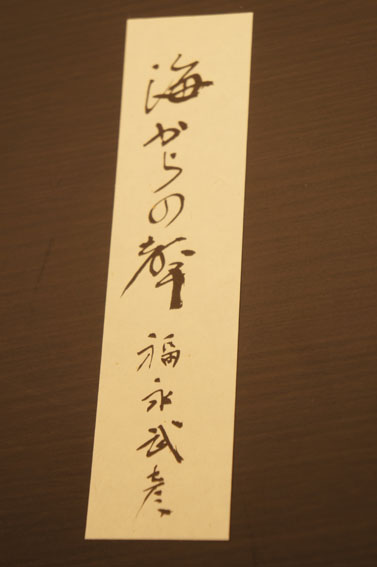 海からの聲
福永武彦